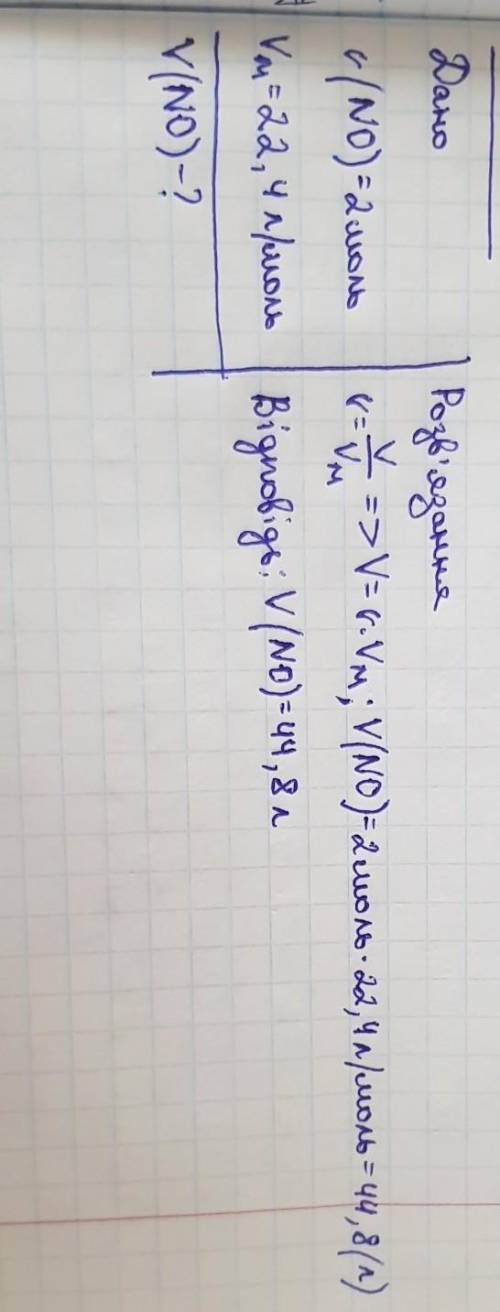 Дано
ν(NO)=2моль
Vм=22,4л/моль
V(NO)-?
Розв'язання
ν=V/Vм => V=ν·Vм; V(NO)=2моль·22,4л/моль=44,8(л)
Відповідь: V(NO)=44,8л